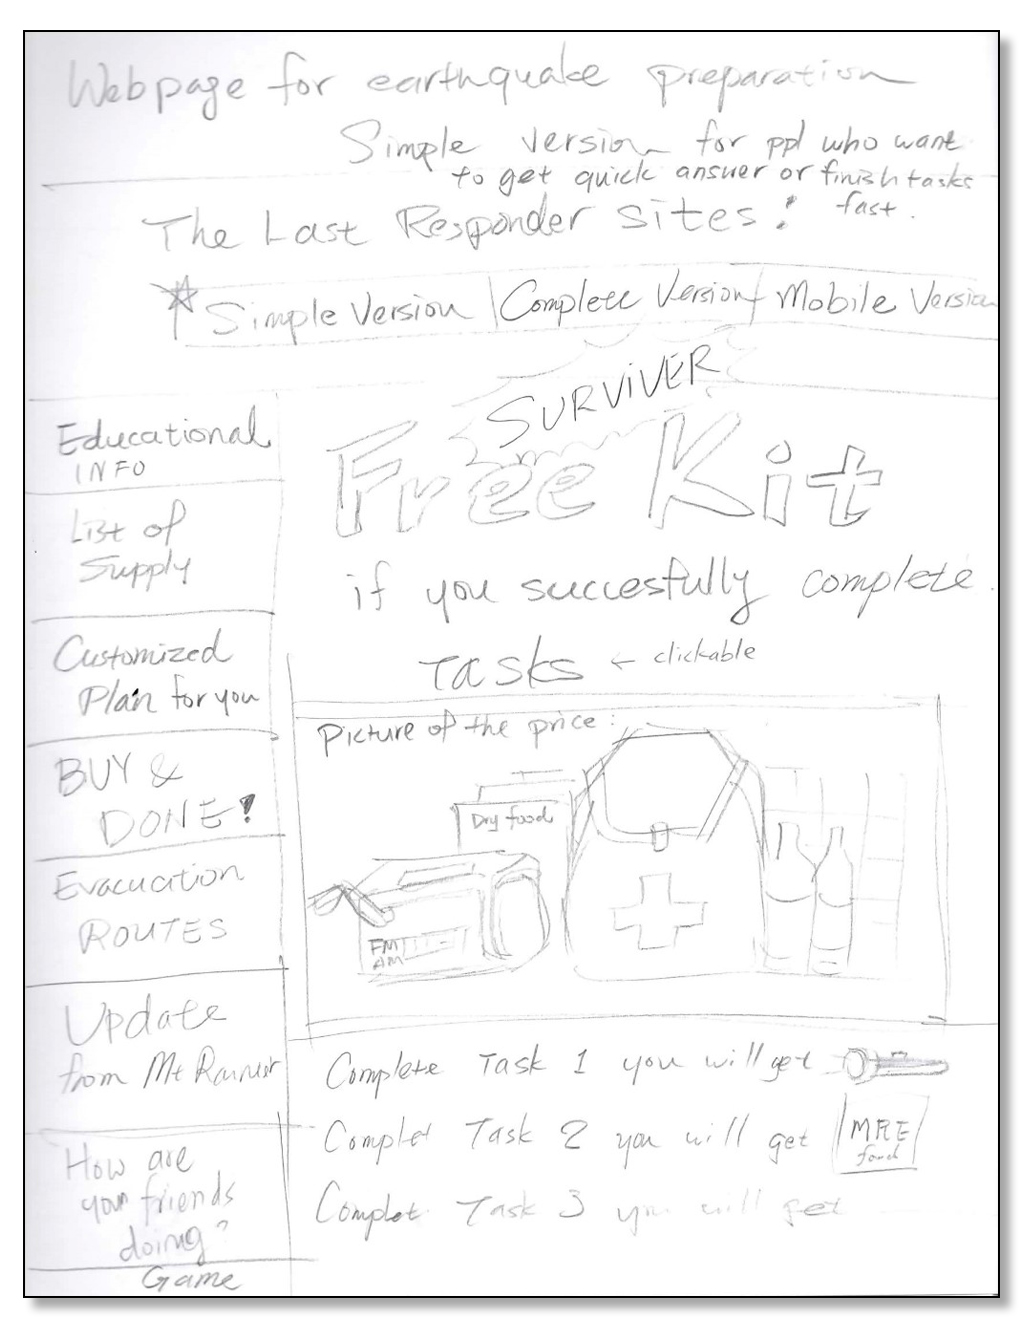 Webpage for earthquake preparation
Simple version for ppl who want
to get quick answer or finish tasks
fast.
The Last Responder Sites:
Simple Version | Complete Version | Mobile Version
Educational
INFO
List of
Supply
Customized
Plan for you
BUY &
DONE!
Evacuation
ROUTES
Update
from Mt
How are
your friends
doing?
Game
SURVIVER
Free Kit
if you succesfully complete
Tasks ← clickable
Picture of the price:
Dry food
FM
AM
Complete Task 1 you will get
Complet Task 2 you will get
MRE
Complet Task 3 you will get